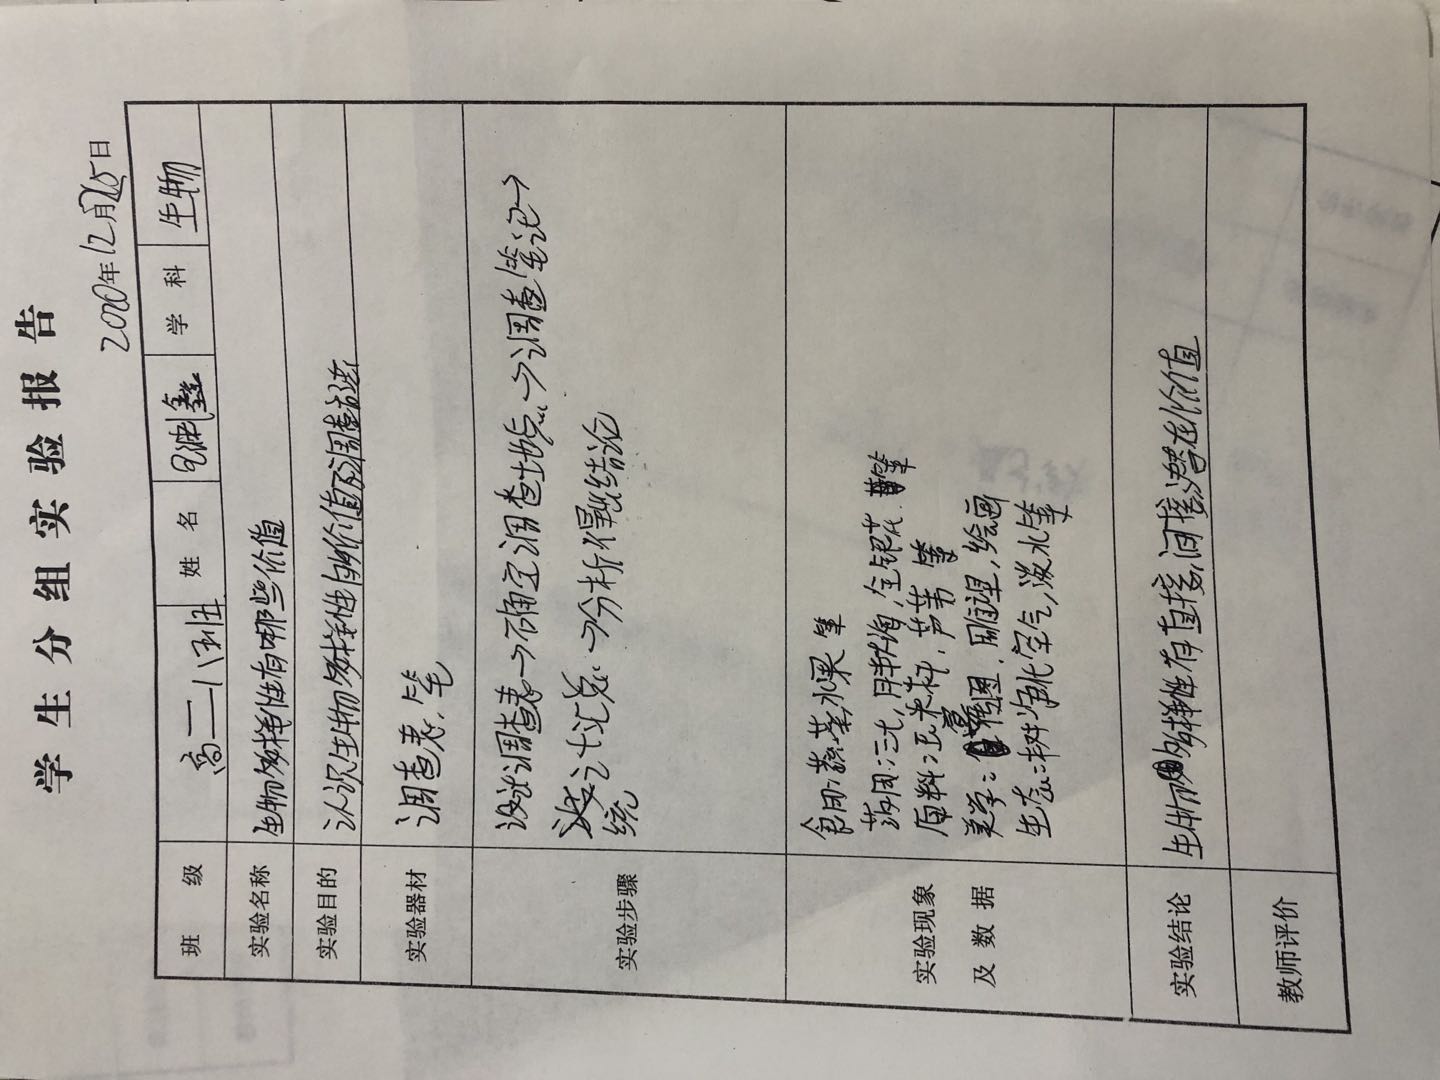 学生分组实验报告
2020年12月25日
班级 高二 姓名 渊鑫 学科 生物
实验名称 生物多样性有哪些价值
实验目的 认识生物多样性的价值及调查方法
实验器材 调查表、笔
实验步骤 设计调查表→确定调查地点→调查笔记→
统计汇总→分析得出结论
实验现象及数据
食用:蔬菜水果等
药用:三七,金银花
原料:玉米秆,芦苇等
美学:绘画
生态:树净化空气,淡水等
实验结论 生物多样性有直接,间接,潜在价值
教师评价